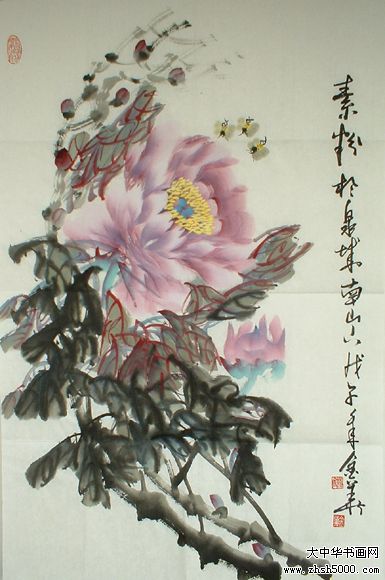 素粉於泉城南山下戊子年金華
大中华书画网
www.zhsh5000.com